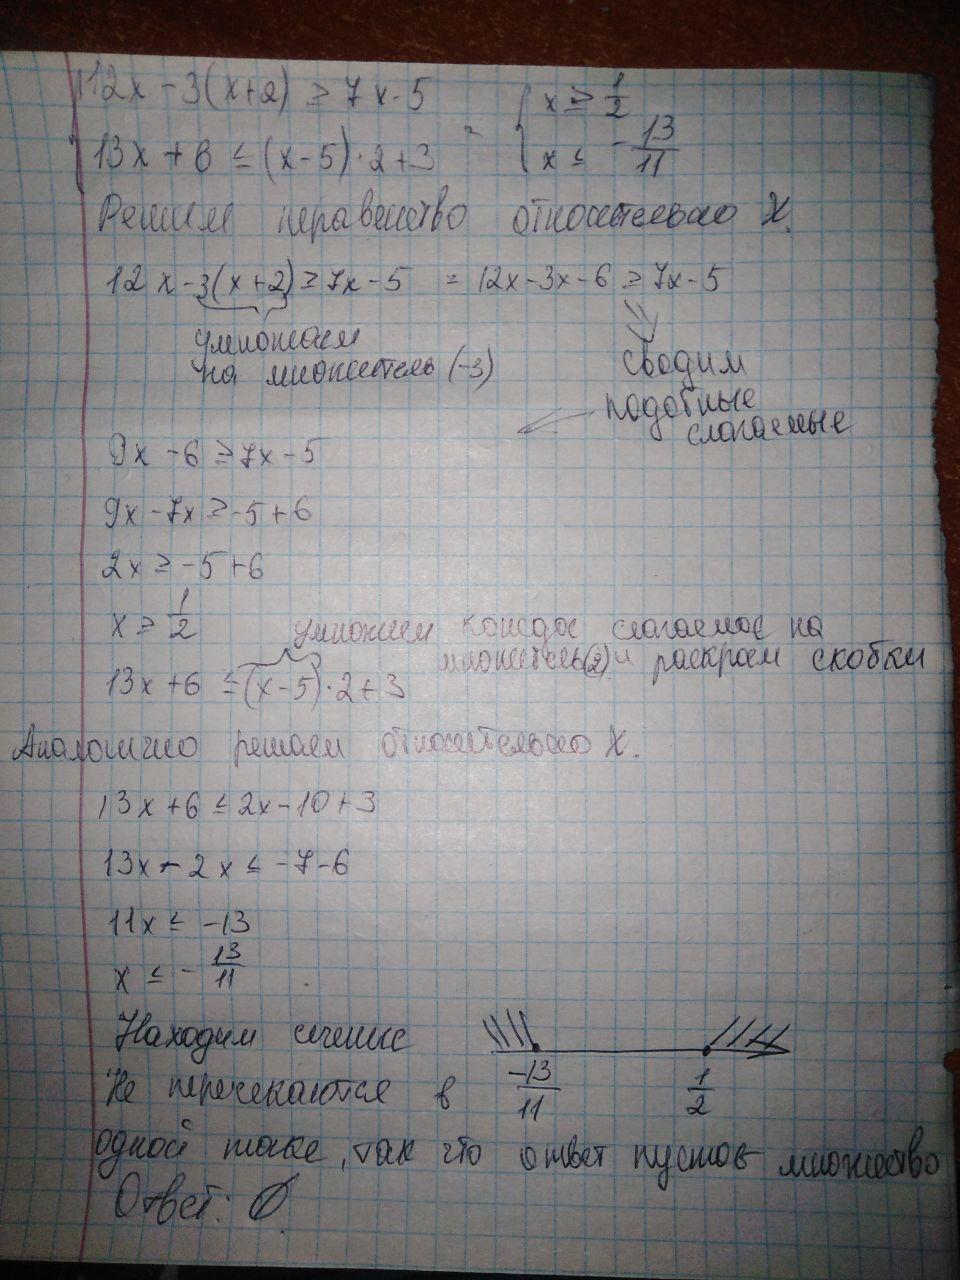 12x - 3(x+2) ≥ 7x-5 = { x ≥ 1/2
13x + 6 ≤ (x-5)·2+3 x ≤ -13/11
Решим неравенство относительно X.
12x-3(x+2) ≥ 7x-5 = 12x-3x-6 ≥ 7x-5
умножаем
на множитель (-3)
сводим
подобные
слагаемые
9x - 6 ≥ 7x - 5
9x - 7x ≥ -5+6
2x ≥ -5+6
x ≥ 1/2
умножим каждое слагаемое на
множитель(2) и раскроем скобки
13x+6 ≤ (x-5)·2+3
Аналогично решаем относительно X.
13x+6 ≤ 2x-10+3
13x-2x ≤ -7-6
11x ≤ -13
x ≤ -13/11
Находим сечение
-13/11 1/2
Не пересекаются в
одной точке, так что ответ пустое множество
Ответ: Ø